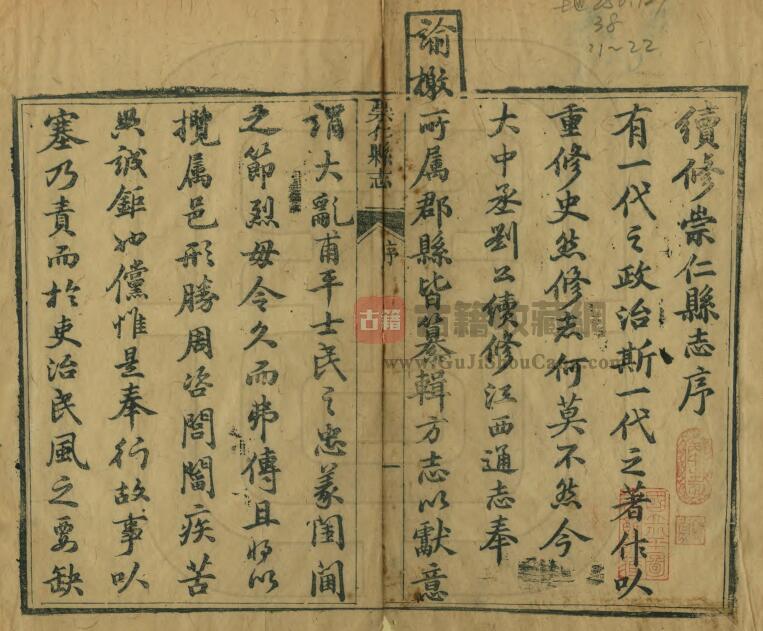 續修崇仁縣志序
有一代之政治斯一代之著作以
重修史然修志何莫不然今
大中丞劉公續修江西通志奉
諭檄所属郡縣皆纂輯方志以獻意
崇仁縣志
序
一
謂大亂甫平士民之忠義閨閫
之節烈毋令久而弗傳且將以
攬属邑形勝周咨閭閻疾苦
典誠鉅也儻惟是奉行故事以
塞乃責而於吏治民風之要缺
38
21~22
古籍
古籍收藏網
www.GuJiShouCang.com